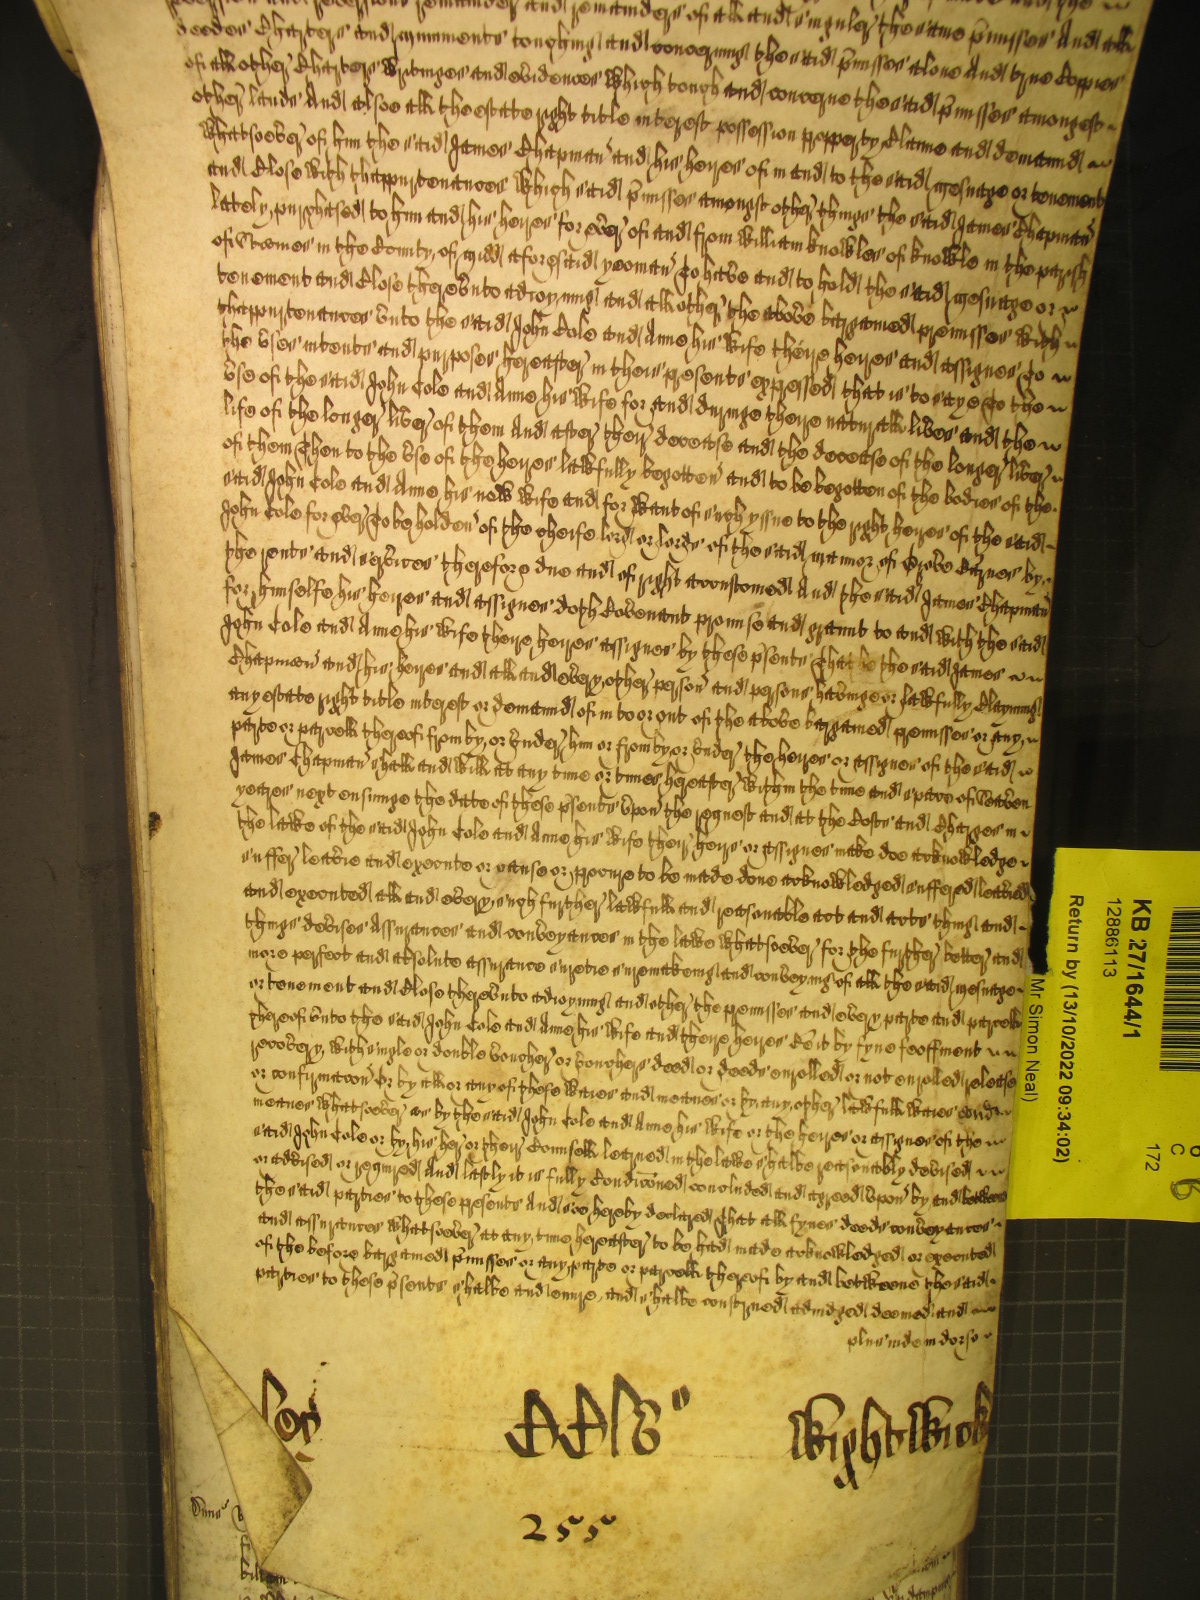 remainder and remainders of all and singuler the same p'misses And all
deedes Charters and muniments touching and concerning the said p'misses alone And true Coppies
of all other Charters Writinges and evidences Which touch and concerne the said p'misses amongest
other lands And alsoe all the estate right title interest possession property Clayme and demaund
Whattsoever of him the said James Chapman and his heires of in and to the said mesuage or tenement
and Close with thappurtenances Which said p'misses amongst other things the said James Chapman
lately purchased to him and his heires for ever of and from William Knowles of Knowle in the parish
of in the County of Midd aforesaid yeoman To have and to hold the said mesuage or
tenement and Close therevnto adioyning and all other the above bargained premisses with
thappurtenances vnto the said John Cole and Anne his Wife theire heires and assignes To
the vses intents and purposes hereafter in theis presents expressed that is to saye To the
vse of the said John Cole and Anne his Wife for and duringe theire naturall lives and the
life of the longer liver of them And after their decease and the decease of the longer liver
of them Then to the vse of the heires lawfully begotten and to be begotten of the bodies of the
said John Cole and Anne his now Wife and for Want of such yssue to the right heires of the said
John Cole for ever To be holden of the cheife lord or lords of the said mannor of by
the rents and services therefore due and of right accustomed And the said James Chapman
for himselfe his heires and assignes doth Covenant promise and graunt to and with the said
John Cole and Anne his Wife theire heires assignes by these p'sents That he the said James
Chapman and his heires and all and every other person and persons havinge or lawfully Clayming
any estate right title interest or demaund of in to or out of the above bargained premisses or any
parte or parcell thereof from by or vnder him or from by or vnder the heires or assignes of the said
James Chapman shall and will att any time or times hereafter within the time and space of Seaven
yeares next ensuinge the date of these p'sents vpon the request and at the Costs and Charges in
the lawe of the said John Cole and Anne his Wife their heirs or assignes make doe acknowledge
suffer leavie and execute or cause or procure to be made done acknowledged suffered leavied
and executed all and every such further lawfull and reasonable act and acts thing and
things devises Assurances and conveyances in the lawe Whattsoever for the further better and
more perfect and absolute assurance suretie suremakeing and conveying of all the said mesuage
or tenement and Close therevnto adioyning and other the premisses and every parte and parcell
thereof vnto the said John Cole and Anne his Wife and theire heires Be it by fyne feoffment
recovery with single or double voucher or vouchers deed or deeds enrolled or not enrolled release
or confirmacon Or by all or any of these Waies and meanes or by any other lawfull Waies and
meanes Whattsoever as by the said John Cole and Anne his Wife or the heires or assignes of the
said John Cole or by his her or their Counsell learned in the lawe shalbe reasonably devised
or advised or required And lastly it is fully Condiconed concluded and agreed vpon by and betweene
the said parties to these presents And soe hereby declared That all fynes deeds conveyances
and assurances Whattsoever at any time hereafter to be had made acknowledged or executed
of the before bargained p'misses or any parte or parcell thereof by and betweene the said
parties to these p'sents shalbe and enure and shalbe construed adiudged deemed and
plus inde in dorso
Wightwick
255
KB 27/1644/1
12886113
Return by (13/10/2022 09:34:02)
Mr Simon Neal)
172
C
6